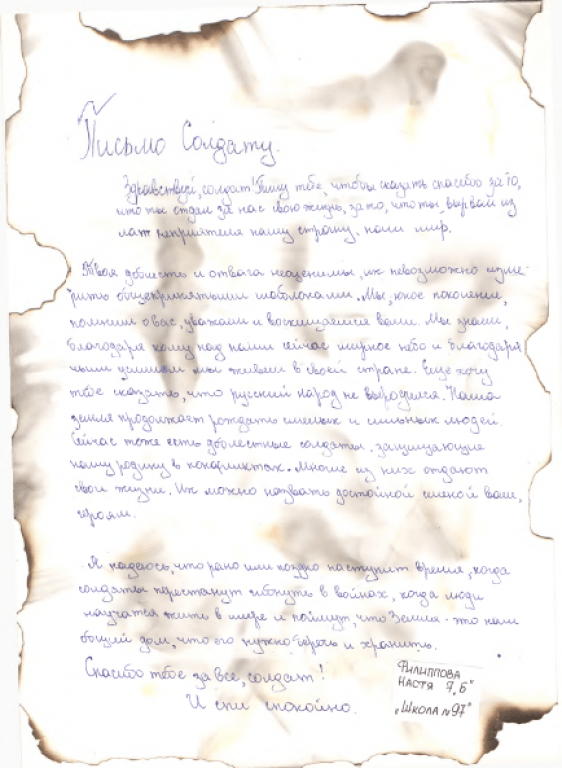 Письмо Солдату.
Здравствуй, солдат! Пишу тебе, чтобы сказать спасибо за то,
что ты отдал за нас свою жизнь, за то, что ты вырвал из
лап неприятеля нашу страну, наш мир.
Твоя доблесть и отвага неоценимы, их невозможно изме-
рить общепринятыми шаблонами. Мы, юное поколение,
помним о вас, уважаем и восхищаемся вами. Мы знаем,
благодаря кому над нами сейчас мирное небо и благодаря
чьим усилиям мы живем в своей стране. Еще хочу
тебе сказать, что русский народ не выродился. Наша
земля продолжает рождать смелых и сильных людей.
Сейчас тоже есть доблестные солдаты, защищающие
нашу родину в конфликтах. Многие из них отдают
свои жизни. Их можно назвать достойной сменой вам,
героям.
Я надеюсь, что рано или поздно наступит время, когда
солдаты перестанут гибнуть в войнах, когда люди
научатся жить в мире и поймут, что Земля - это наш
общий дом, что его нужно беречь и хранить.
Спасибо тебе за все, солдат!
И спи спокойно.
Филиппова
Настя 7„Б"
„Школа №97"